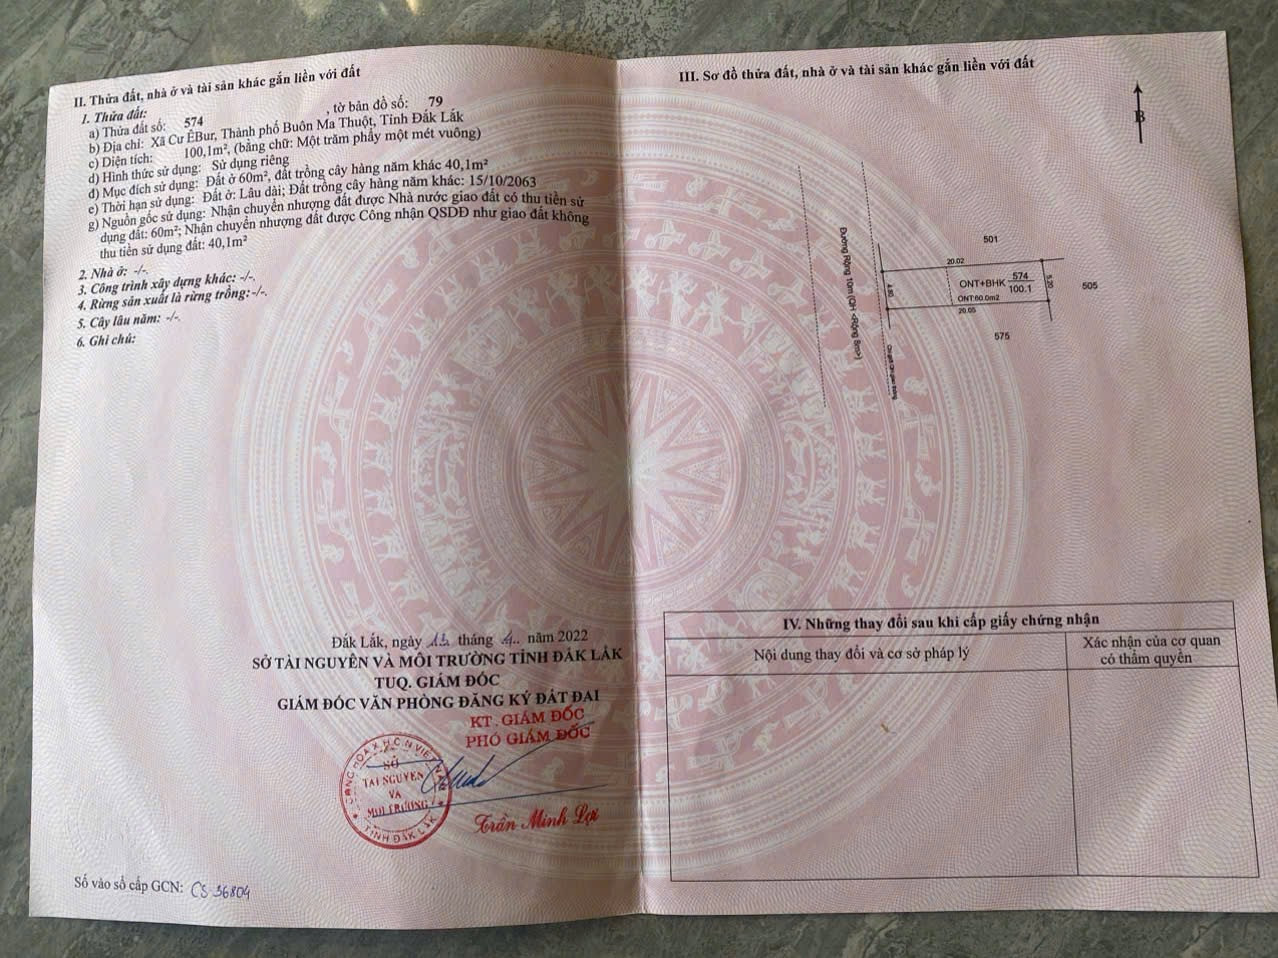 II. Thửa đất, nhà ở và tài sản khác gắn liền với đất
1. Thửa đất:
a) Thửa đất số: 574 , tờ bản đồ số: 79
b) Địa chỉ: Xã Cư ÊBur, Thành phố Buôn Ma Thuột, Tỉnh Đắk Lắk
c) Diện tích: 100,1m², (bằng chữ: Một trăm phẩy một mét vuông)
d) Hình thức sử dụng: Sử dụng riêng
đ) Mục đích sử dụng: Đất ở 60m², đất trồng cây hàng năm khác 40,1m²
e) Thời hạn sử dụng: Đất ở: Lâu dài; Đất trồng cây hàng năm khác: 15/10/2063
g) Nguồn gốc sử dụng: Nhận chuyển nhượng đất được Nhà nước giao đất có thu tiền sử
dụng đất: 60m²; Nhận chuyển nhượng đất được Công nhận QSDĐ như giao đất không
thu tiền sử dụng đất: 40,1m²
2. Nhà ở: -/-.
3. Công trình xây dựng khác: -/-.
4. Rừng sản xuất là rừng trồng: -/-.
5. Cây lâu năm: -/-.
6. Ghi chú:
Đắk Lắk, ngày 13 tháng 4 năm 2022
SỞ TÀI NGUYÊN VÀ MÔI TRƯỜNG TỈNH ĐẮK LẮK
TUQ. GIÁM ĐỐC
GIÁM ĐỐC VĂN PHÒNG ĐĂNG KÝ ĐẤT ĐAI
KT. GIÁM ĐỐC
PHÓ GIÁM ĐỐC
CỘNG HÒA X.H.C.N VIỆT NAM
SỞ
TÀI NGUYÊN
VÀ
MÔI TRƯỜNG
TỈNH ĐẮK LẮK
Trần Minh Lợi
Số vào sổ cấp GCN: CS 36804
III. Sơ đồ thửa đất, nhà ở và tài sản khác gắn liền với đất
B
Đường Rộng 10m (QH <Rộng 8m>)
501
20.02
4.80
ONT+BHK 574
100.1
5.50
505
ONT:60.0m2
20.05
575
IV. Những thay đổi sau khi cấp giấy chứng nhận
Nội dung thay đổi và cơ sở pháp lý
Xác nhận của cơ quan
có thẩm quyền